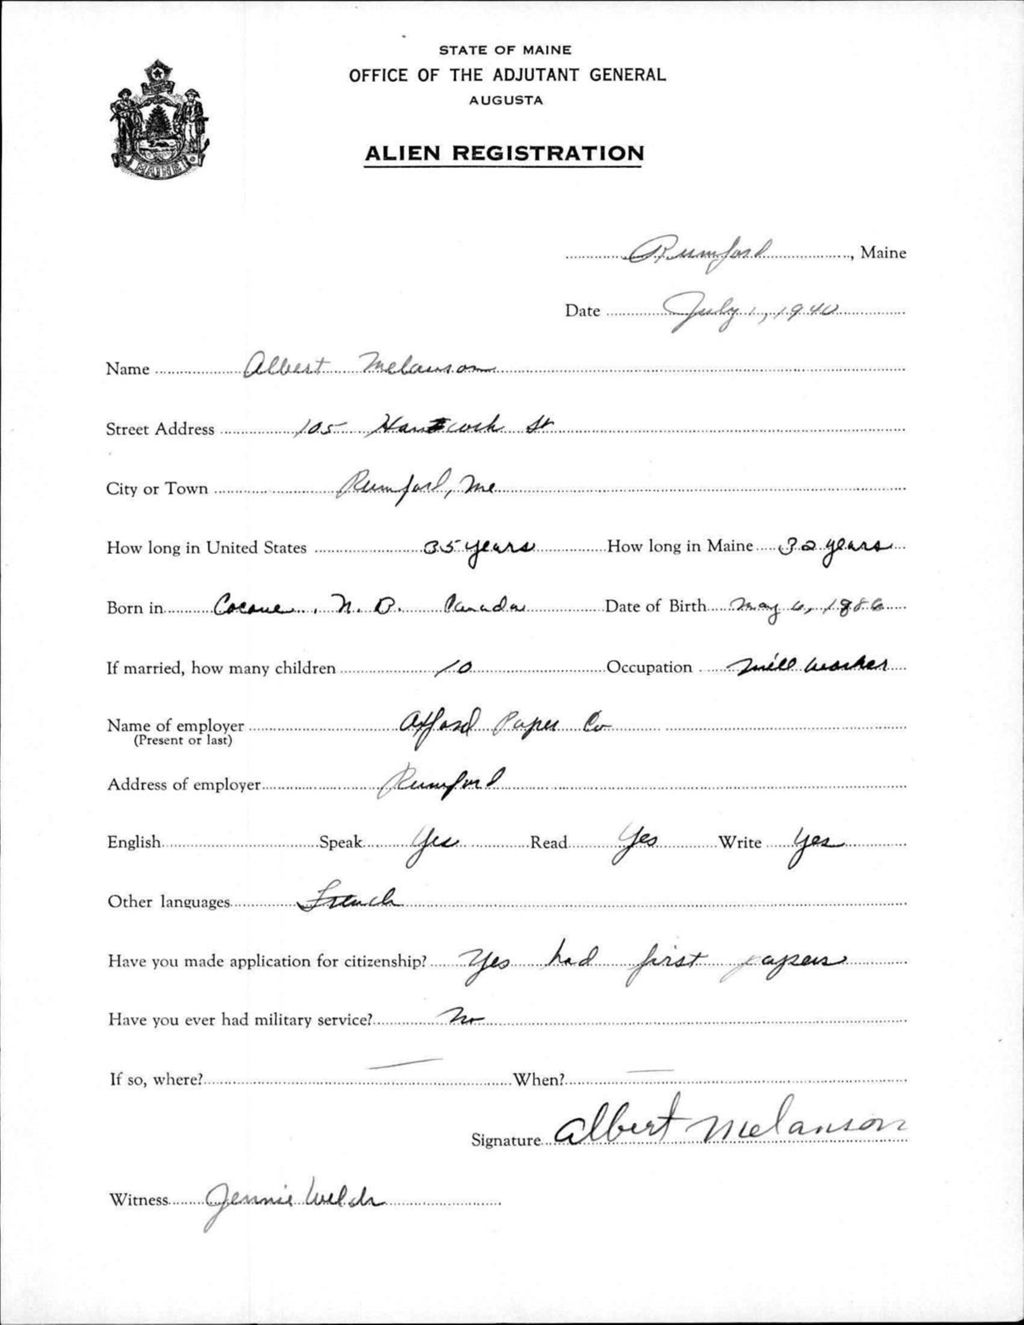 STATE OF MAINE
OFFICE OF THE ADJUTANT GENERAL
AUGUSTA
ALIEN REGISTRATION
MAINE
Rumford, Maine
Date July 1, 1940
Name Albert Melanson
Street Address 105 Hancock St
City or Town Rumford, Me
How long in United States 35 years How long in Maine 32 years
Born in Cocane, N. B. Canada Date of Birth May 6, 1886
If married, how many children 10 Occupation Mill worker
Name of employer Oxford Paper Co
(Present or last)
Address of employer Rumford
English Speak Yes Read Yes Write Yes
Other languages French
Have you made application for citizenship? Yes had first papers
Have you ever had military service? No
If so, where? — When? —
Signature Albert Melanson
Witness Jennie Welch